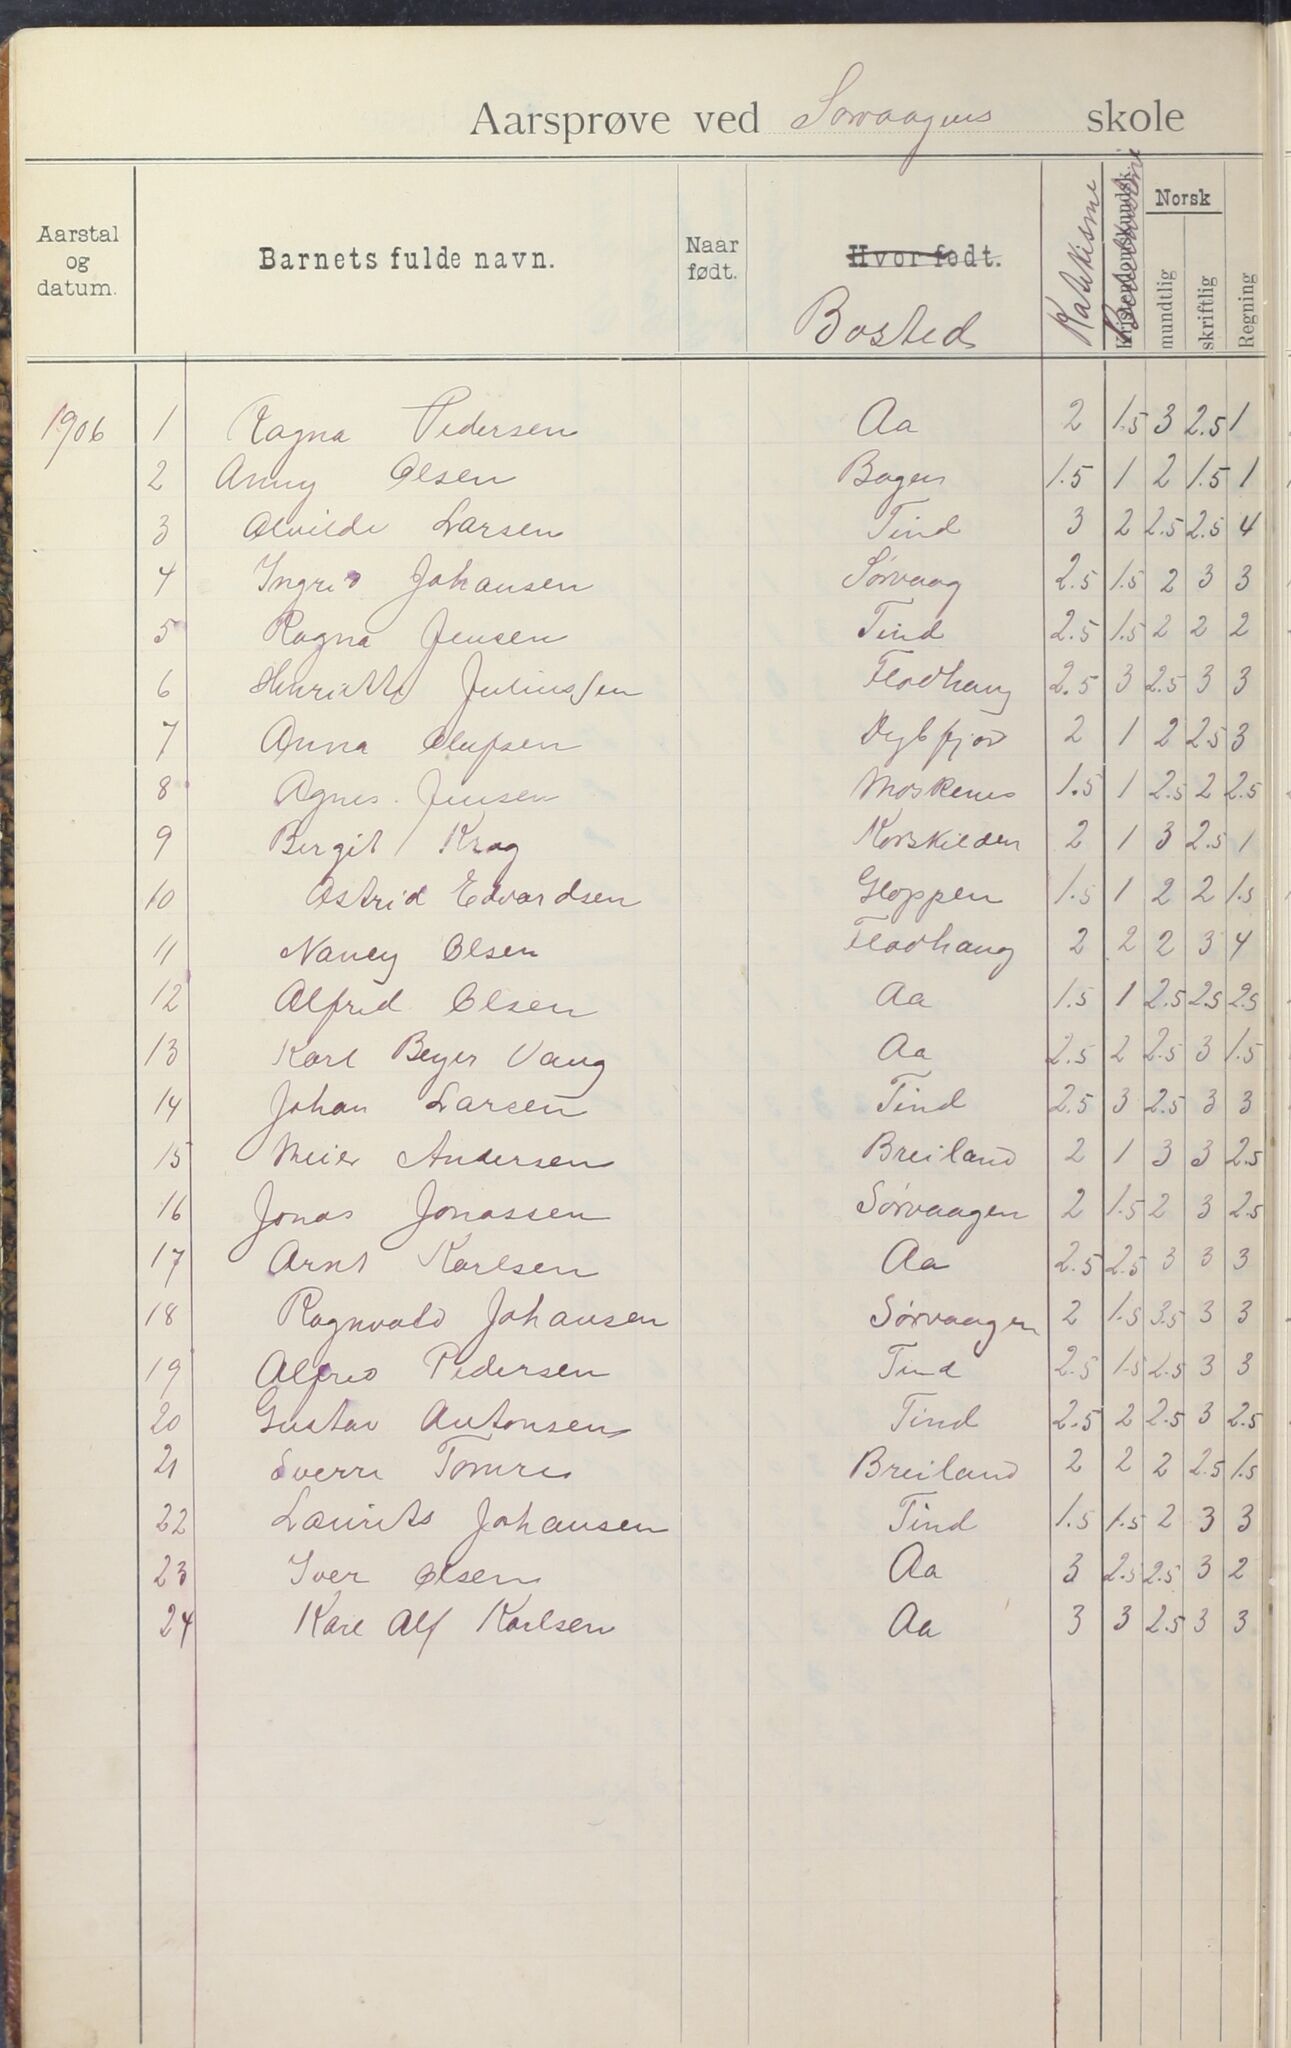 Aarsprøve ved Sørvaagens skole
Aarstal og datum. Barnets fulde navn. Naar født. Hvor født. Bosted Katekisme Kristendomskundsk. Norsk mundtlig skriftlig Regning
1906 1 Ragna Pedersen Aa 2 1.5 3 2.5 1
2 Anny Olsen Bogen 1.5 1 2 1.5 1
3 Alvilde Larsen Tind 3 2 2.5 2.5 4
4 Ingrid Johansen Sørvaag 2.5 1.5 2 3 3
5 Ragna Jensen Tind 2.5 1.5 2 2 2
6 Henriette Juliussen Flodhaug 2.5 3 2.5 3 3
7 Anna Olufsen Dybfjord 2 1 2 2.5 3
8 Agnes Jensen Moskenes 1.5 1 2.5 2 2.5
9 Bergit Krog Korskilden 2 1 3 2.5 1
10 Astrid Edvardsen Gloppen 1.5 1 2 2 1.5
11 Nancy Olsen Flodhaug 2 2 2 3 4
12 Alfred Olsen Aa 1.5 1 2.5 2.5 2.5
13 Karl Beyer Vaag Aa 2.5 2 2.5 3 1.5
14 Johan Larsen Tind 2.5 3 2.5 3 3
15 Meier Andersen Breiland 2 1 3 3 2.5
16 Jonas Jonassen Sørvaagen 2 1.5 2 3 2.5
17 Arnt Karlsen Aa 2.5 2.5 3 3 3
18 Ragnvald Johansen Sørvaagen 2 1.5 3.5 3 3
19 Alfred Pedersen Tind 2.5 1.5 2.5 3 3
20 Gustav Antonsen Tind 2.5 2 2.5 3 2.5
21 Sverre Tomre Breiland 2 2 2 2.5 1.5
22 Laurits Johansen Tind 1.5 1.5 2 3 3
23 Iver Olsen Aa 3 2.5 2.5 3 2
24 Karl Alf Karlsen Aa 3 3 2.5 3 3